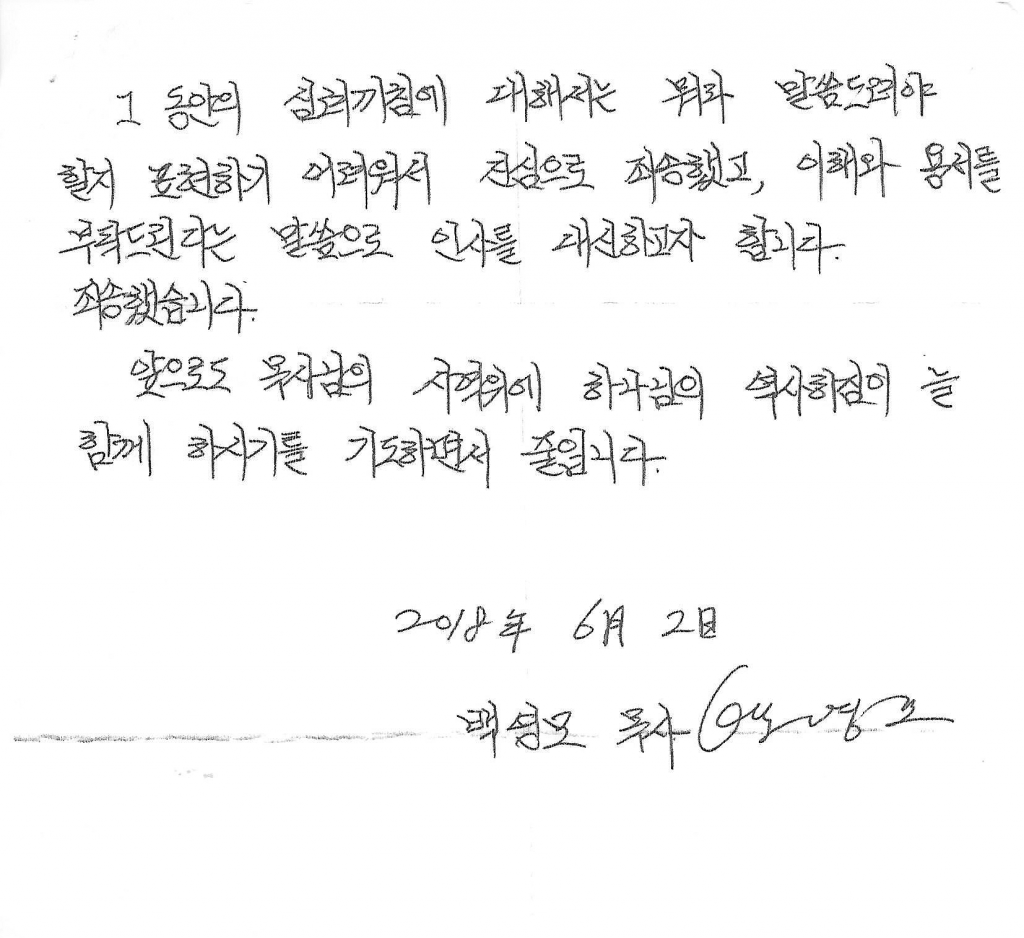 그 동안의 심려끼침에 대해서는 뭐라 말씀드려야
할지 표현하기 어려워서 진심으로 죄송했고, 이해와 용서를
부탁드린다는 말씀으로 인사를 대신하고자 합니다.
죄송했습니다.
앞으로도 목사님의 사역위에 하나님의 역사하심이 늘
함께 하시기를 기도하면서 줄입니다.
2018年 6月 2日
백영모 목사